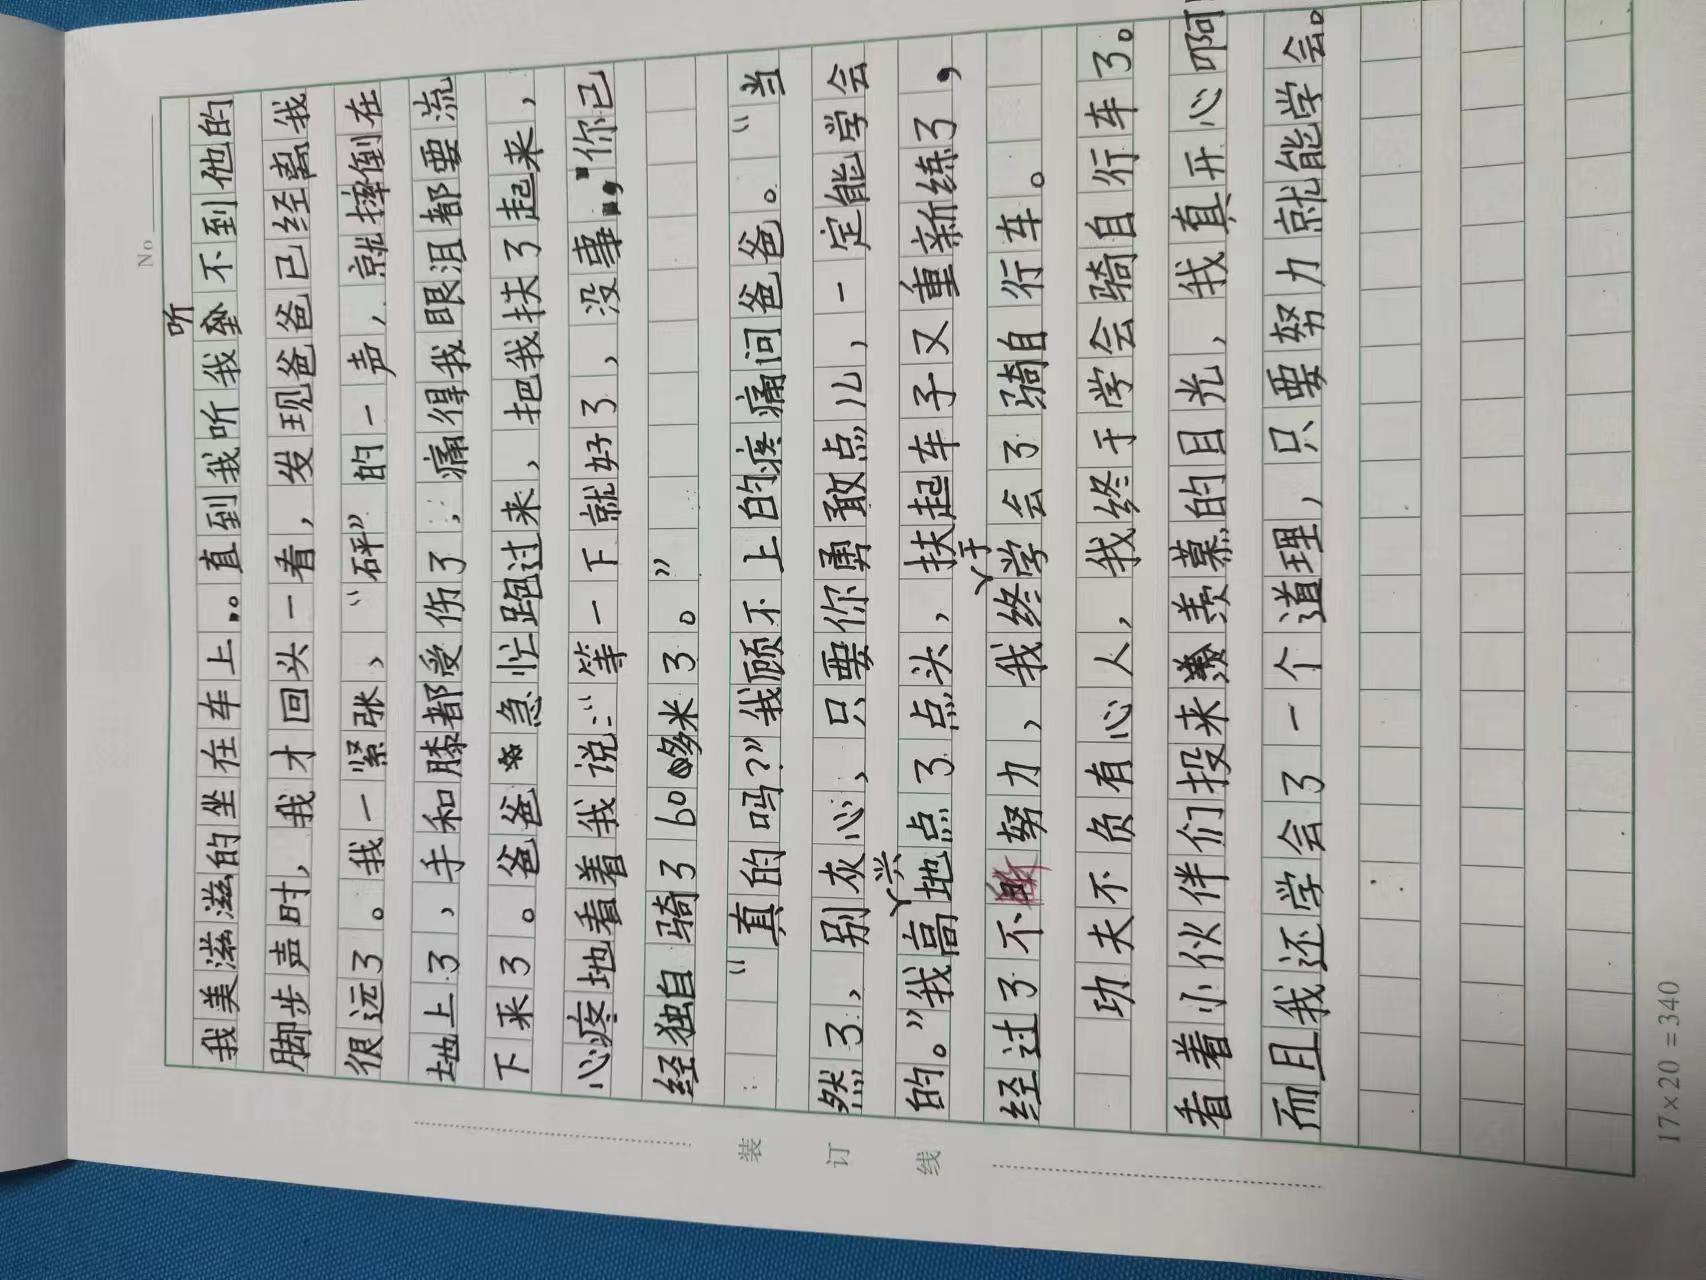 No
听
我美滋滋的坐在车上。。直到我听我 不到他的
脚步声时,我才回头一看,发现爸爸已经离我
很远了。我一紧张、“砰”的一声,就摔倒在
地上了、手和膝都受伤了,痛得我眼泪都要流
下来了。爸爸急忙跑过来、把我扶了起来,
心疼地看着我说:“等一下就好了、没事,“你已
经独自骑了60多米了。”
“真的吗?”我顾不上的疼痛问爸爸。“当
然了、别灰心、只要你勇敢点儿,一定能学会
的。”我高兴地点了点头,扶起车子又重新练了,
经过了不断努力、我终于学会了骑自行车。
功夫不负有心人,我终于学会骑自行车了。
看着小伙伴们投来羡慕的目光,我真开心啊
而且我还学会了一个道理,只要努力就能学会。
装订线
17×20=340